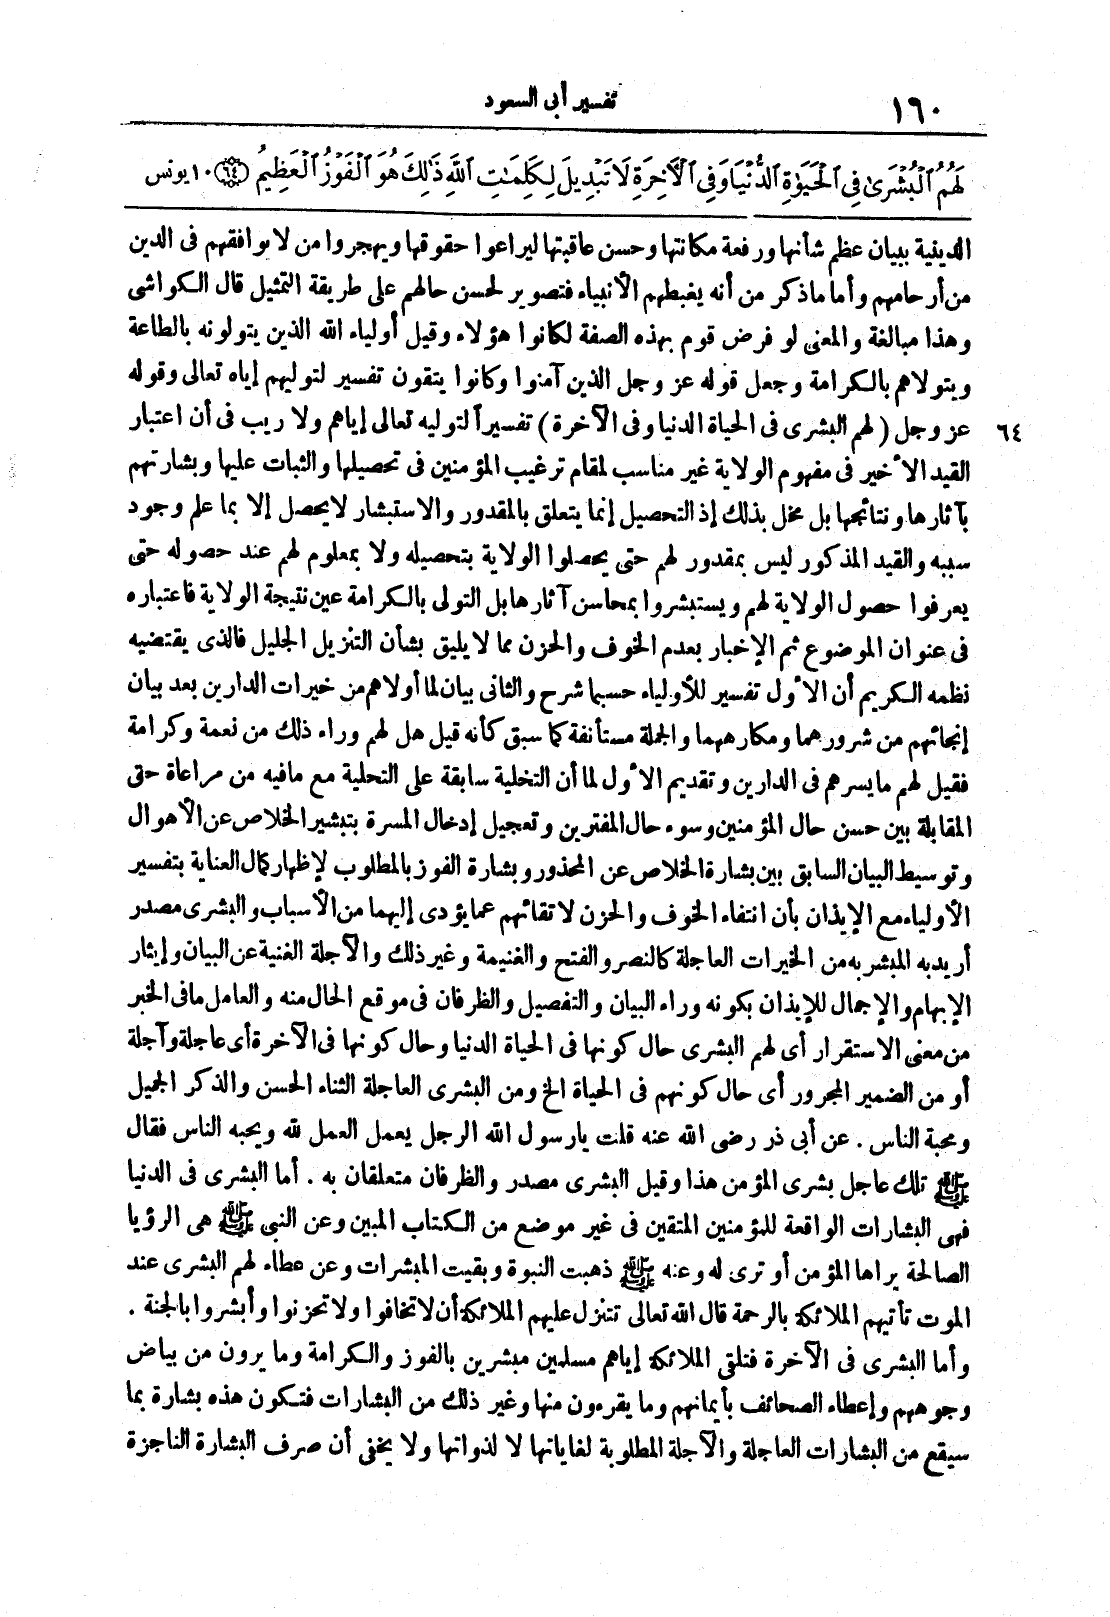 ١٦٠
تفسير أبى السعود
لَهُمُ ٱلْبُشْرَىٰ فِى ٱلْحَيَوٰةِ ٱلدُّنْيَا وَفِى ٱلْأٓخِرَةِ لَا تَبْدِيلَ لِكَلِمَٰتِ ٱللَّهِ ذَٰلِكَ هُوَ ٱلْفَوْزُ ٱلْعَظِيمُ ٦٤ ١٠ يونس
الدينية ببيان عظم شأنها ورفعة مكانتها وحسن عاقبتها ليراعوا حقوقها ويهجروا من لا يوافقهم فى الدين
من أرحامهم وأما ماذكر من أنه يغبطهم الأنبياء فتصوير لحسن حالهم على طريقة التمثيل قال الكواشى
وهذا مبالغة والمعنى لو فرض قوم بهذه الصفة لكانوا هؤلاء وقيل أولياء الله الذين يتولونه بالطاعة
ويتولاهم بالكرامة وجعل قوله عز وجل الذين آمنوا وكانوا يتقون تفسير لتوليهم إياه تعالى وقوله
عز وجل ( لهم البشرى فى الحياة الدنيا وفى الآخرة ) تفسيراً لتوليه تعالى إياهم ولا ريب فى أن اعتبار ٦٤
القيد الأخير فى مفهوم الولاية غير مناسب لمقام ترغيب المؤمنين فى تحصيلها والثبات عليها وبشارتهم
بآثارها ونتائجها بل مخل بذلك إذ التحصيل إنما يتعلق بالمقدور والاستبشار لا يحصل إلا بما علم وجود
سببه والقيد المذكور ليس بمقدور لهم حتى يحصلوا الولاية بتحصيله ولا بمعلوم لهم عند حصوله حتى
يعرفوا حصول الولاية لهم ويستبشروا بمحاسن آثارها بل التولى بالكرامة عين نتيجة الولاية فاعتباره
فى عنوان الموضوع ثم الإخبار بعدم الخوف والحزن مما لا يليق بشأن التنزيل الجليل فالذى يقتضيه
نظمه الكريم أن الأول تفسير للأولياء حسبما شرح والثانى بيان لما أولاهم من خيرات الدارين بعد بيان
إنجائهم من شرورهما ومكارههما والجملة مستأنفة كما سبق كأنه قيل هل لهم وراء ذلك من نعمة وكرامة
فقيل لهم مايسرهم فى الدارين وتقديم الأول لما أن التخلية سابقة على التحلية مع مافيه من مراعاة حتى
المقابلة بين حسن حال المؤمنين وسوء حال المفترين وتعجيل إدخال المسرة بتبشير الخلاص عن الأهوال
وتوسيط البيان السابق بين بشارة الخلاص عن المحذور وبشارة الفوز بالمطلوب لإظهار كمال العناية بتفسير
الأولياء مع الإيذان بأن انتفاء الخوف والحزن لاتقائهم عما يؤدى إليهما من الأسباب والبشرى مصدر
أريد به المبشر به من الخيرات العاجلة كالنصر والفتح والغنيمة وغير ذلك والآجلة الغنية عن البيان وإيثار
الإبهام والإجمال للإيذان بكونه وراء البيان والتفصيل والظرفان فى موقع الحال منه والعامل مافى الخبر
من معنى الاستقرار أى لهم البشرى حال كونها فى الحياة الدنيا وحال كونها فى الآخرة أى عاجلة وآجلة
أو من الضمير المجرور أى حال كونهم فى الحياة الخ ومن البشرى العاجلة الثناء الحسن والذكر الجميل
ومحبة الناس . عن أبى ذر رضى الله عنه قلت يارسول الله الرجل يعمل العمل لله ويحبه الناس فقال
ﷺ تلك عاجل بشرى المؤمن هذا وقيل البشرى مصدر والظرفان متعلقان به . أما البشرى فى الدنيا
فهى البشارات الواقعة للمؤمنين المتقين فى غير موضع من الكتاب المبين وعن النبى ﷺ هى الرؤيا
الصالحة يراها المؤمن أو ترى له وعنه ﷺ ذهبت النبوة وبقيت المبشرات وعن عطاء لهم البشرى عند
الموت تأتيهم الملائكة بالرحمة قال الله تعالى تتنزل عليهم الملائكة أن لا تخافوا ولا تحزنوا وأبشروا بالجنة .
وأما البشرى فى الآخرة فتلقى الملائكة إياهم مسلمين مبشرين بالفوز والكرامة وما يرون من بياض
وجوههم وإعطاء الصحائف بأيمانهم وما يقرءون منها وغير ذلك من البشارات فتكون هذه بشارة بما
سيقع من البشارات العاجلة والآجلة المطلوبة لغاياتها لا لذواتها ولا يخفى أن صرف البشارة الناجزة